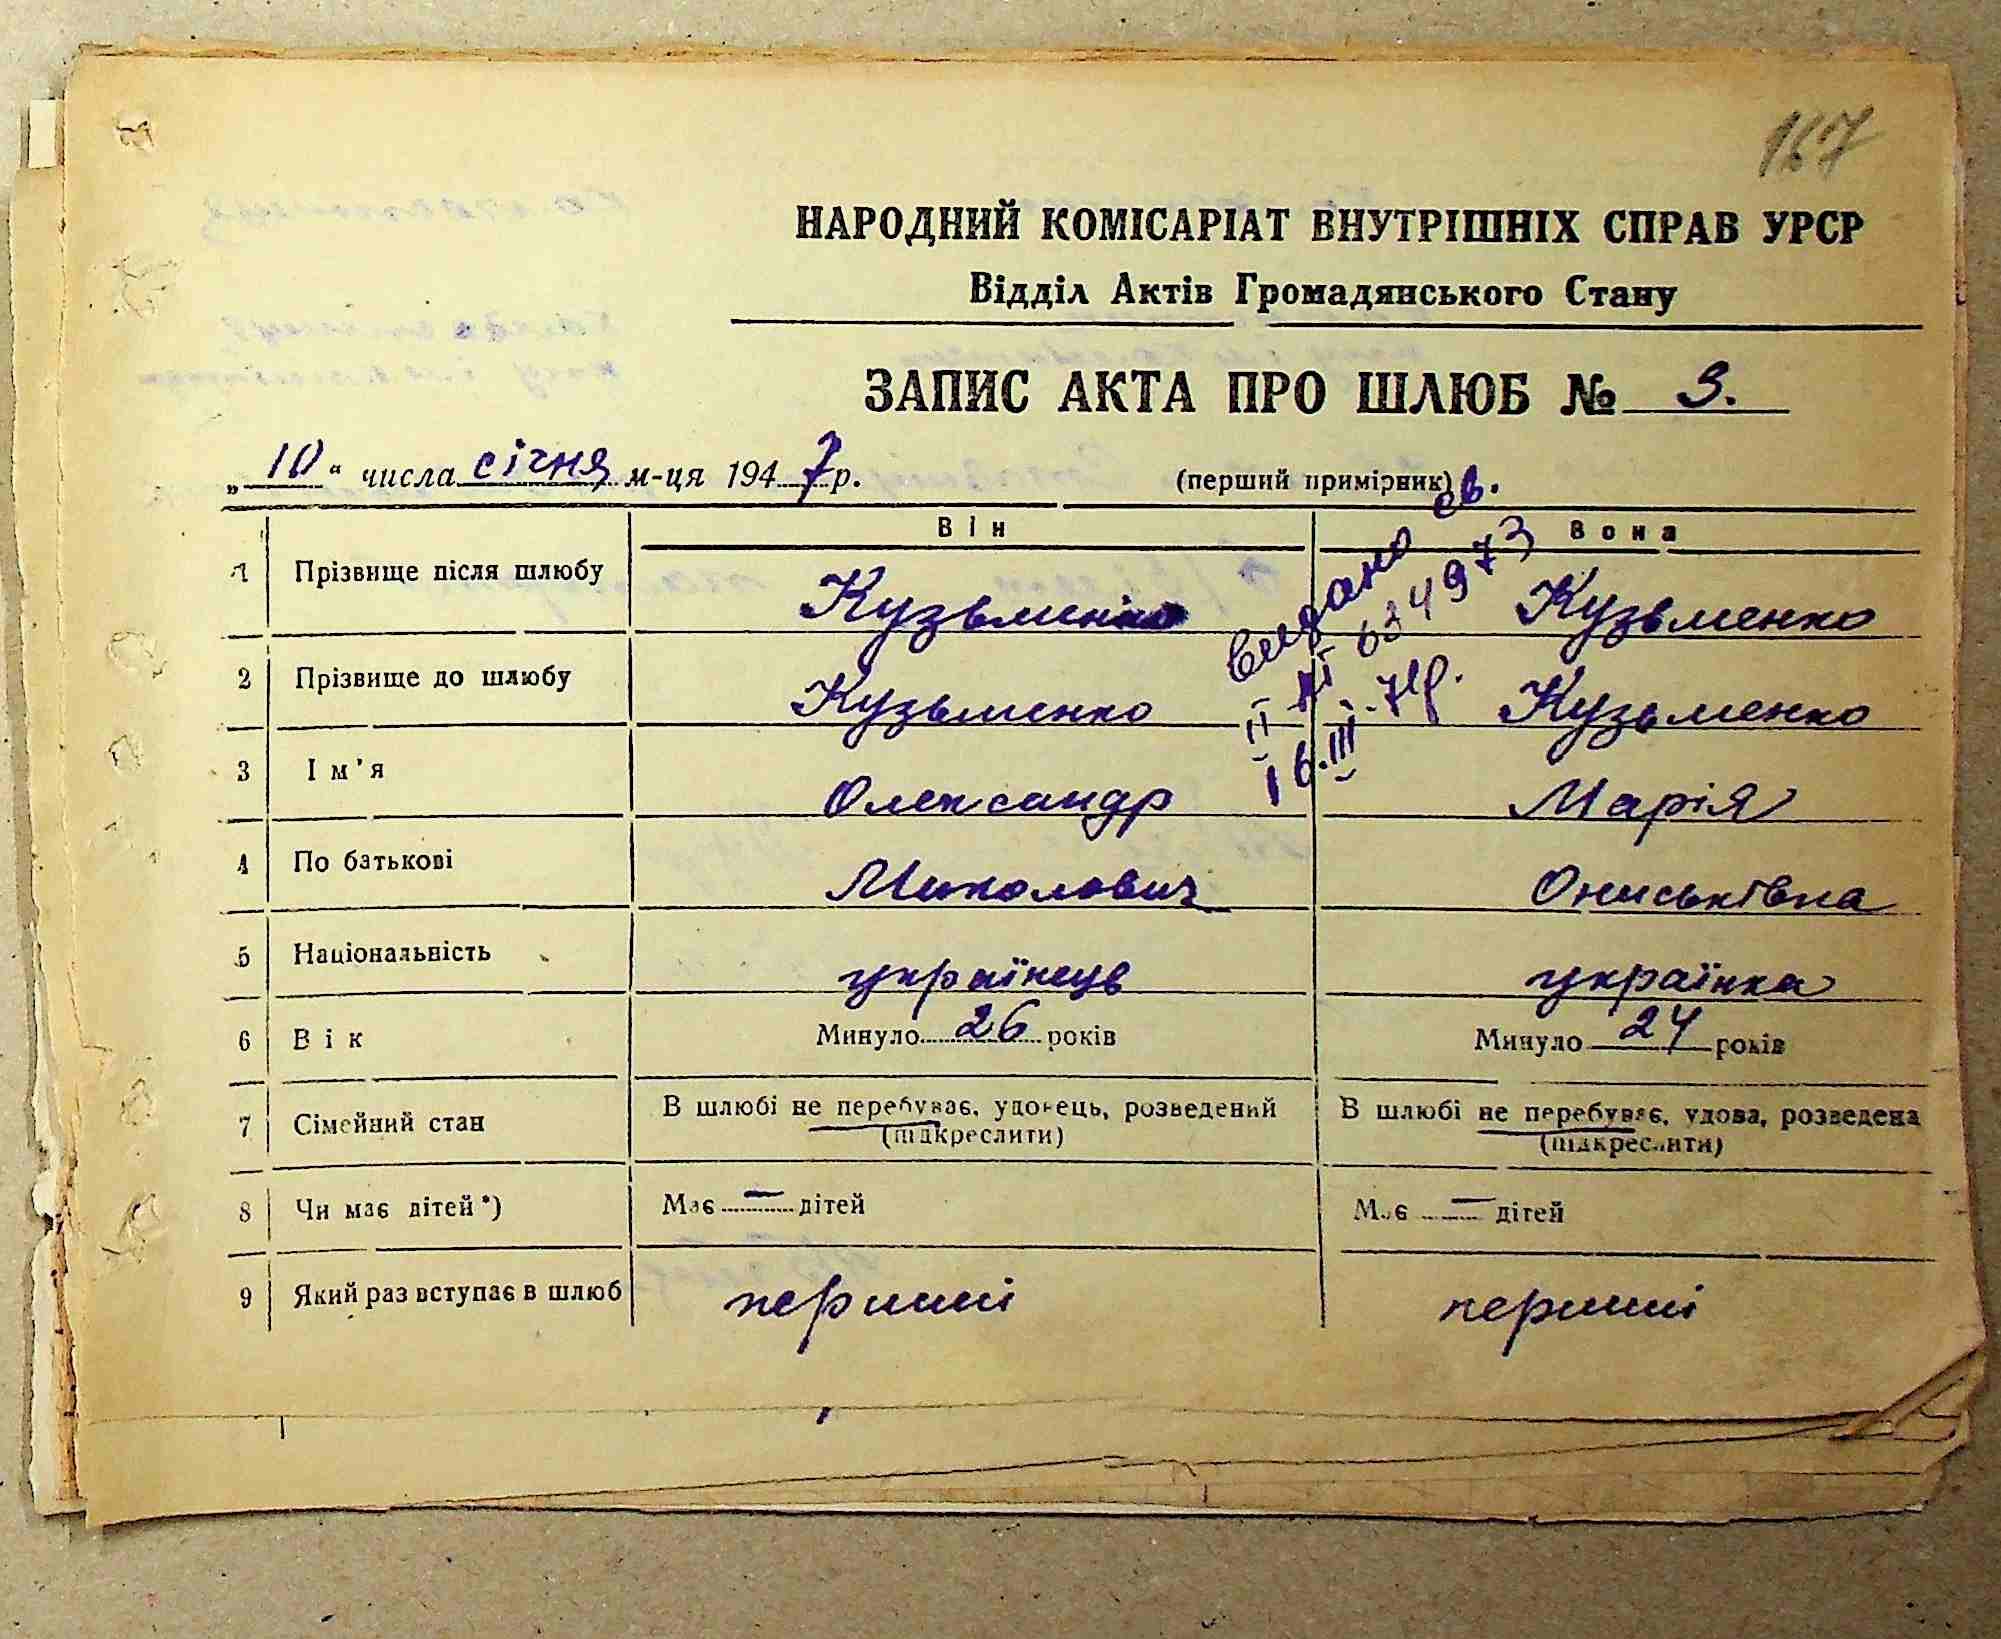 167
НАРОДНИЙ КОМІСАРІАТ ВНУТРІШНІХ СПРАВ УРСР
Відділ Актів Громадянського Стану
ЗАПИС АКТА ПРО ШЛЮБ № 3.
„10“ числа січня м-ця 1947 р. (перший примірник)
Він Вона
видано св.
II 634973
16.III.71р.
1 Прізвище після шлюбу Кузьменко Кузьменко
2 Прізвище до шлюбу Кузьменко Кузьменко
3 Ім'я Олександр Марія
4 По батькові Миколович Ониськівна
5 Національність українець українка
6 Вік Минуло 26 років Минуло 24 років
7 Сімейний стан В шлюбі не перебуває, удовець, розведений В шлюбі не перебуває, удова, розведена
(підкреслити) (підкреслити)
8 Чи має дітей*) Має — дітей Має — дітей
9 Який раз вступає в шлюб перший перший